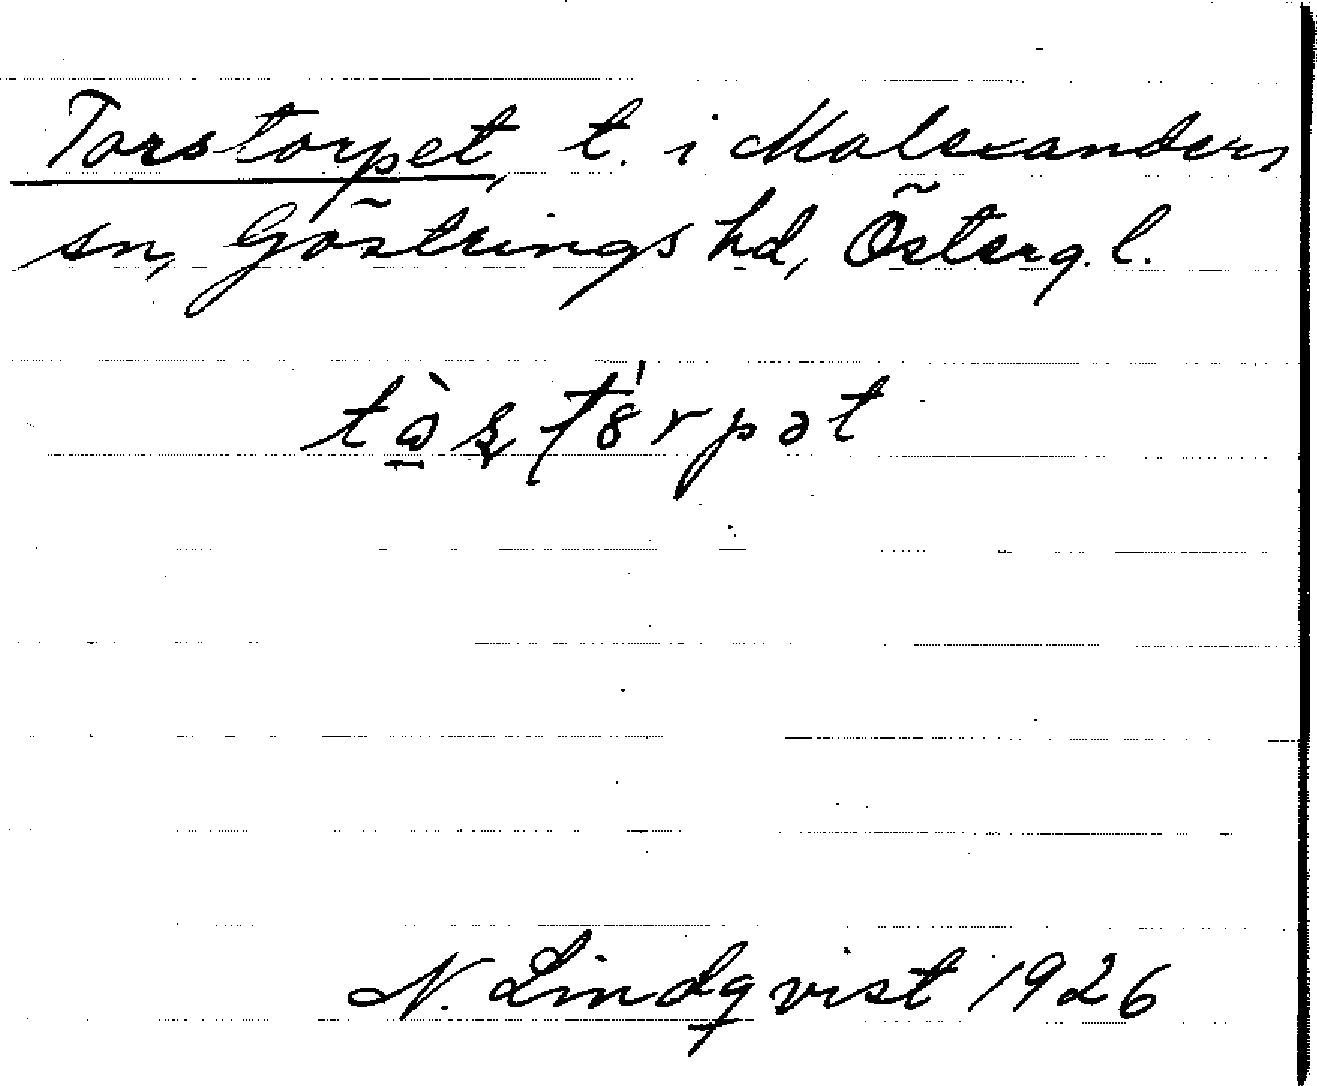 Torstorpet, t. i Malexanders
sn, Göstrings hd, Österg. l.
N. Lindqvist 1926